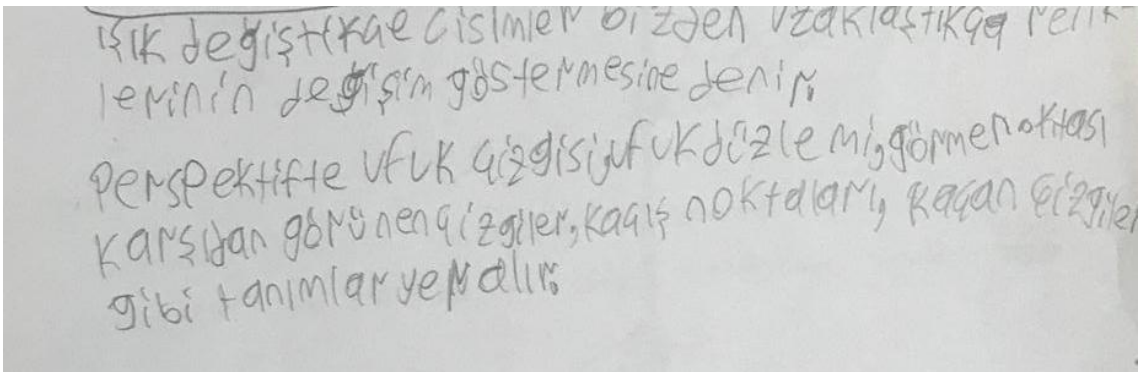 ışık değiştikçe cisimler bizden uzaklaştıkça renk-
lerinin değişim göstermesine denir.
Perspektifte ufuk çizgisi, ufuk düzlemi, görme noktası
karşıdan görünen çizgiler, kaçış noktaları, kaçan çizgiler
gibi tanımlar yer alır.